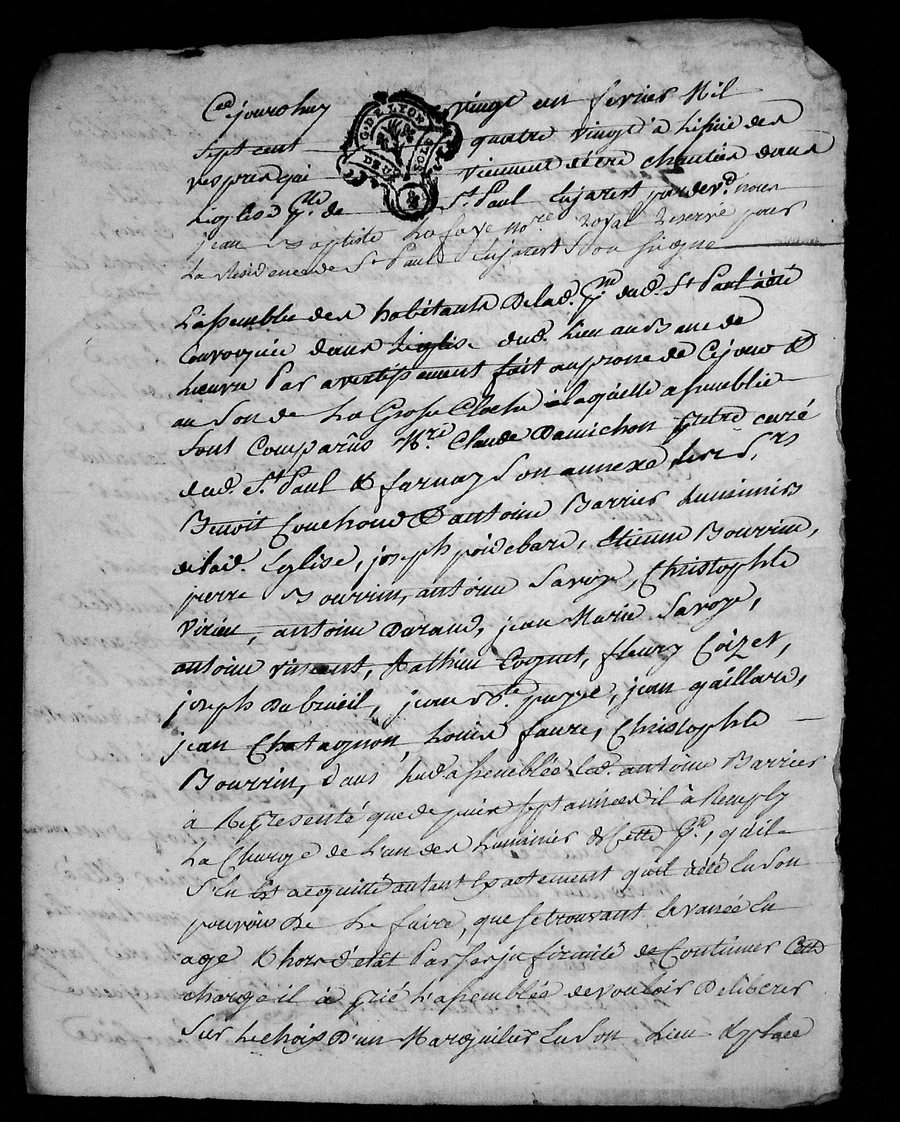 Cejourdhuy vingt un fevrier Mil
Sept cent quatre vingt à L'issüe des
vespres qui viennent d'etre chantées dans
L'eglise p.lle de St. Paul Enjarest pardev.t nous
jean Baptiste Lafaye no.re Royal Reservé pour
La Residence de St Paul Enjarest Sous signé
G. DE LYON
DEUX SOLS
L'assemblée des habitants Delad. p.sse dud. St Paul à été
Convoquée dans L'eglise dud. Lieu au Banc de
L'oeuvre Par avertissement fait au prone de Cejour &
au Son de La Grosse Cloche à laquelle assemblée
Sont Comparûs M.re Claude Damichon pretre curé
dud. St Paul & farnay Son annexe, les S.rs
Benoit Couchoud & antoine Barrier Luminiers
delad. Eglise, joseph poidebard, Etienne Bourrin,
pierre Bourrin, antoine Savoye, Christophle
Virieu, antoine Durand, jean Marie Savoye,
antoine vincent, Mathieu Coignet, fleury Coizet,
joseph Dubrueil, jean B.te puyye, jean gaillard,
jean Chatagnon, Louis faure, Christophle
Bourrin, Dans Lad. assemblée Led. antoine Barrier
à Représenté que depuis sept années il à Remply
La Charge de L'un des Luminiers de Cette p.sse, qu'il
S'en est acquitté autant Exactement qu'il à été En Son
pouvoir De Le faire, que se trouvant avancé En
age & hors d'etat Par ses infirmités de Continuer Cette
charge il à prié L'assemblée de vouloir Deliberer
Sur Le choix D'un Marguilier En Son Lieu & place